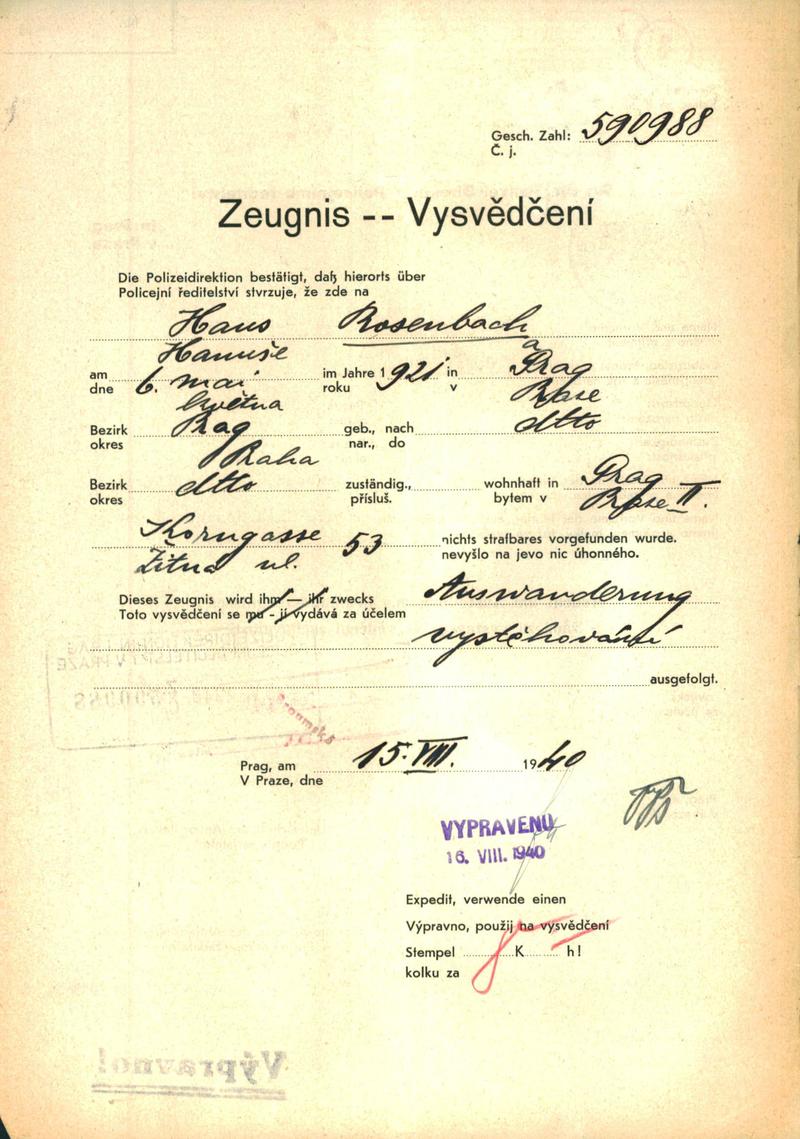 Gesch. Zahl: 590988
Č. j.
Zeugnis -- Vysvědčení
Die Polizeidirektion bestätigt, daß hierorts über
Policejní ředitelství stvrzuje, že zde na
Hans Rosenbach
Hanuše
am 6. mai im Jahre 1921 in Prag
dne května roku v Praze
Bezirk Prag geb., nach dtto
okres Praha nar., do
Bezirk dtto zuständig., wohnhaft in Prag
okres přísluš. bytem v Praze II.
Korngasse 53 nichts strafbares vorgefunden wurde.
Žitná ul. nevyšlo na jevo nic úhonného.
Dieses Zeugnis wird ihm — ihr zwecks Auswanderung
Toto vysvědčení se mu - jí vydává za účelem
vystěhování
ausgefolgt.
Prag, am 15. VIII. 1940
V Praze, dne
VYPRAVENO
16. VIII. 1940
Expedit, verwende einen
Výpravno, použij na vysvědčení
Stempel K h!
kolku za
Výpravno!